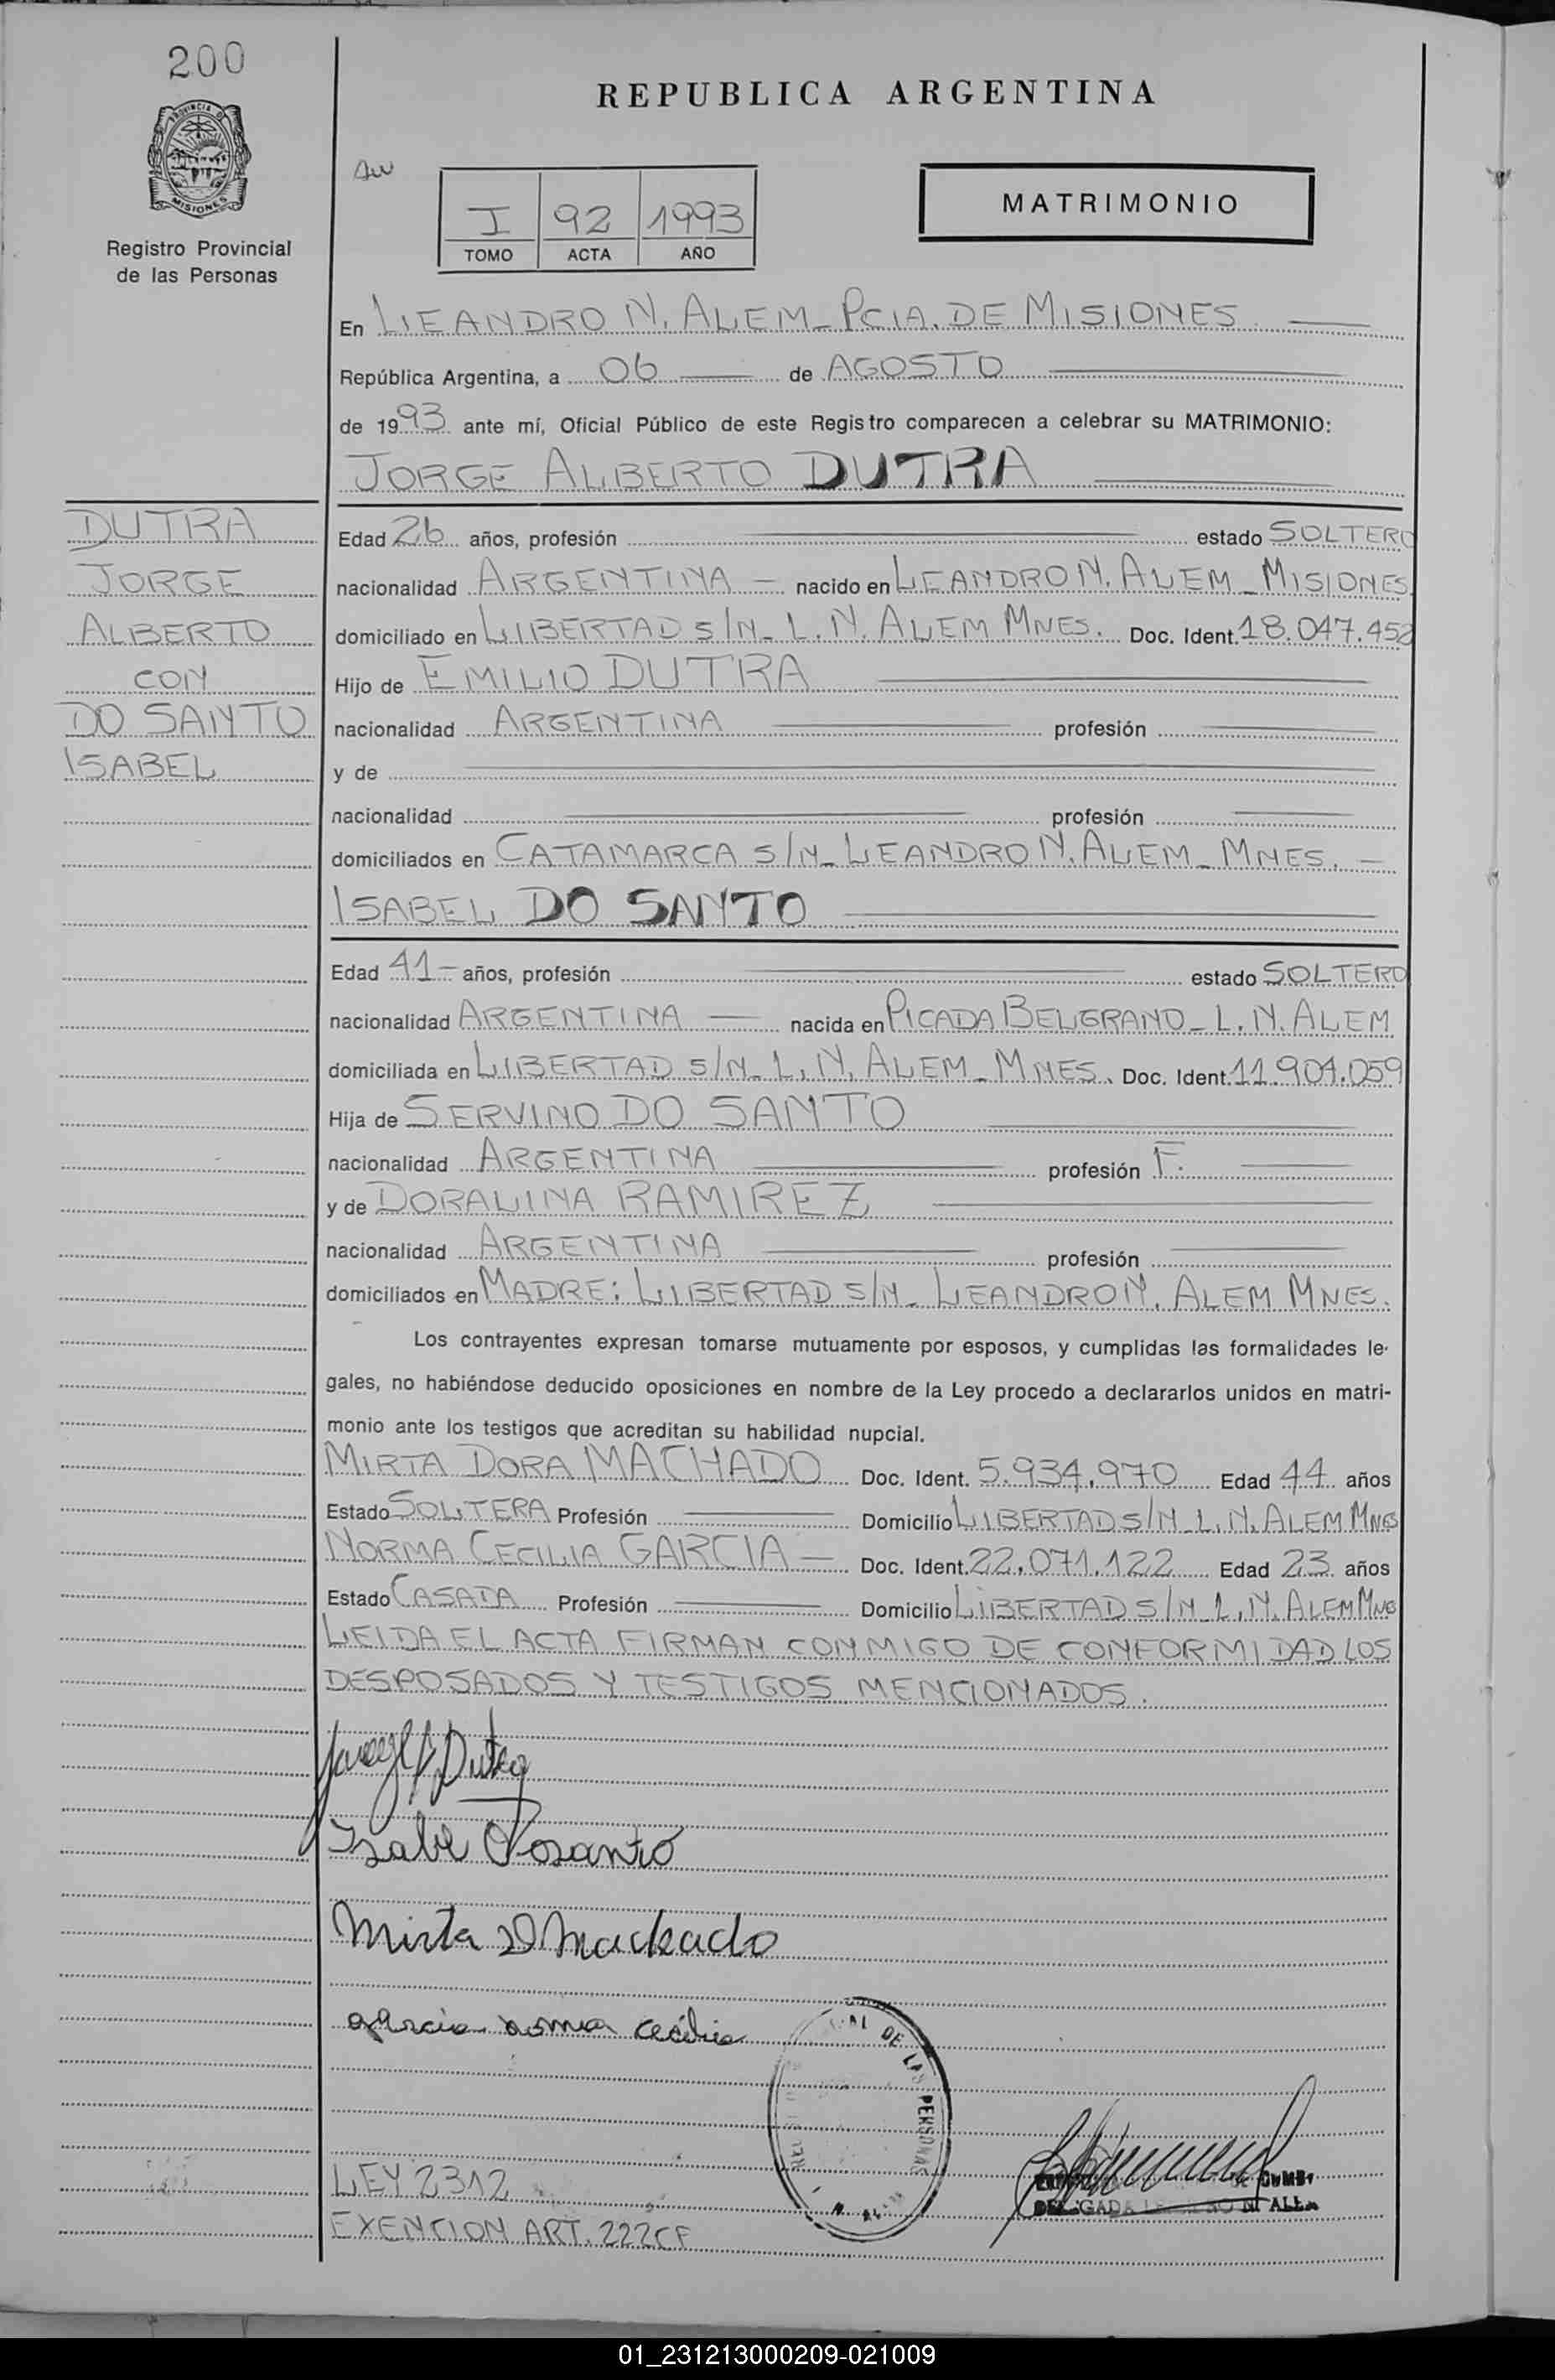 200
PROVINCIA DE
MISIONES
Registro Provincial
de las Personas
REPUBLICA ARGENTINA
I 92 1993
TOMO ACTA AÑO
MATRIMONIO
En LEANDRO N. ALEM_ PCIA. DE MISIONES
República Argentina, a 06 de AGOSTO
de 1993 ante mí, Oficial Público de este Registro comparecen a celebrar su MATRIMONIO:
JORGE ALBERTO DUTRA
DUTRA
JORGE
ALBERTO
CON
DO SANTO
ISABEL
Edad 26 años, profesión estado SOLTERO
nacionalidad ARGENTINA — nacido en LEANDRO N. ALEM_ MISIONES
domiciliado en LIBERTAD S/N_ L.N. ALEM MNES. Doc. Ident. 18.047.452
Hijo de EMILIO DUTRA
nacionalidad ARGENTINA profesión
y de
nacionalidad profesión
domiciliados en CATAMARCA S/N_ LEANDRO N. ALEM_ MNES. —
ISABEL DO SANTO
Edad 41 — años, profesión estado SOLTERO
nacionalidad ARGENTINA — nacida en PICADA BELGRANO_ L.N. ALEM
domiciliada en LIBERTAD S/N_ L.N. ALEM_ MNES. Doc. Ident. 11.904.059
Hija de SERVINO DO SANTO
nacionalidad ARGENTINA profesión F.
y de DORALINA RAMIREZ
nacionalidad ARGENTINA profesión
domiciliados en MADRE: LIBERTAD S/N_ LEANDRO N. ALEM MNES.
Los contrayentes expresan tomarse mutuamente por esposos, y cumplidas las formalidades le-
gales, no habiéndose deducido oposiciones en nombre de la Ley procedo a declararlos unidos en matri-
monio ante los testigos que acreditan su habilidad nupcial.
MIRTA DORA MACHADO Doc. Ident. 5.934.970 Edad 44 años
Estado SOLTERA Profesión Domicilio LIBERTAD S/N_ L.N. ALEM MNES
NORMA CECILIA GARCIA — Doc. Ident. 22.071.122 Edad 23 años
Estado CASADA Profesión Domicilio LIBERTAD S/N_ L.N. ALEM MNES
LEIDA EL ACTA FIRMAN CONMIGO DE CONFORMIDAD LOS
DESPOSADOS Y TESTIGOS MENCIONADOS.
Jorge A Dutra
Isabel Dosanto
Mirta D Machado
garcia norma cecilia
DE LAS PERSONAS
LEY 2312
EXENCION ART. 222CF
01_231213000209-021009